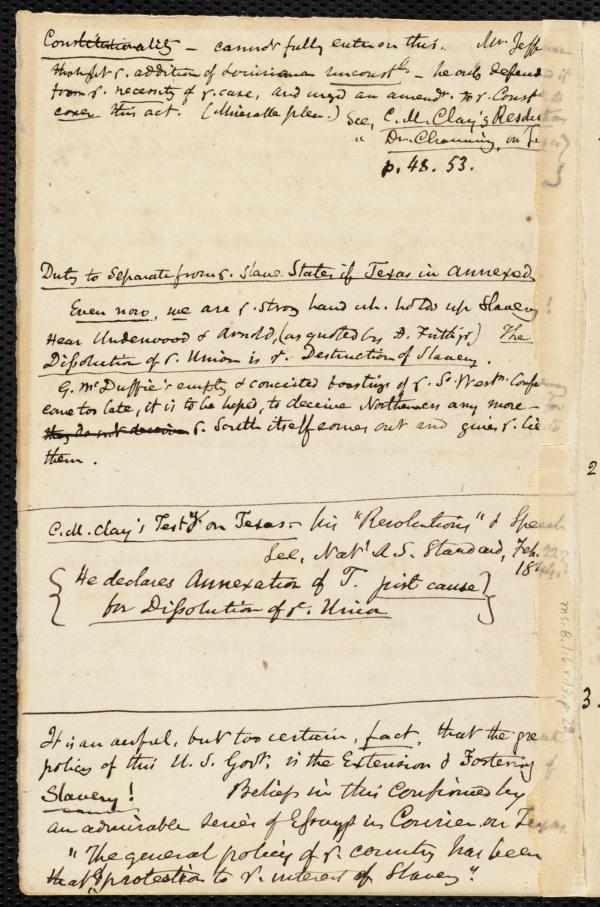 Constitutionality – cannot fully enter on this. Mr. Jeff
thought r. addition of Louisiana unconstl – he only defend
from r. necessity of r. case, and urged an amendt. to r. Const
cover this act. (Miserable plea.) See, C. M. Clay's Resolu
" Dr. Channing, on Te
p. 48. 53.
Duty to Separate from r. Slave States if Texas in annexed
Even now, we are r. strong hand wh. holds up Slavery!
Hear Underwood & Arnold, (as quoted by D. ) The
Dissolution of r. Union is r. Destruction of Slavery.
G. McDuffie's empty & conceited boastings of r. So Westn. Confe
come too late, it is to be hoped, to deceive Northerners any more –
they do not deceive r. South itself comes out and gives r. lie to
them.
2
C. M. Clay's Testy on Texas – his "Resolutions" & Speech
See, Natl A. S. Standard, Feb. 22
184
{ He declares Annexation of T. just cause }
for Dissolution of r. Union
ms. B.1.6 v.13, p. 29
3.
It is an awful, but too certain, fact, that the great
policy of this U. S. Govt. is the Extension & Fostering of
Slavery! Belief in this Confirmed by
an admirable series of Essays in Courier on Texas
"The general policy of r. country has been
that of protection to r. interest of Slavery".